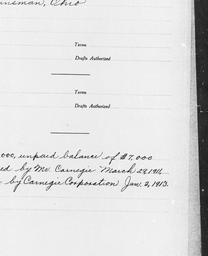 insman, Ohio
Terms
Drafts Authorized
Terms
Drafts Authorized
,000, unpaid balance of $7,000
ed by Mr. Carnegie March 28, 1911
by Carnegie Corporation Jan. 2, 1913.